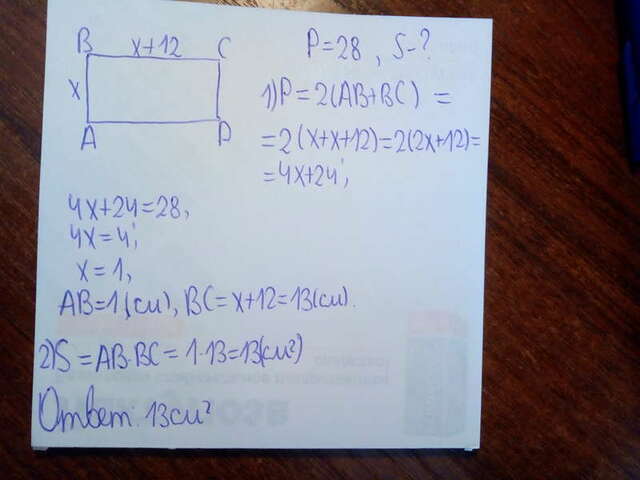 B x+12 C
x
A D
P=28, S-?
1) P=2(AB+BC) =
=2(x+x+12)=2(2x+12)=
=4x+24;
4x+24=28,
4x=4;
x=1,
AB=1(см), BC=x+12=13(см).
2) S=AB·BC=1·13=13(см²)
Ответ: 13см²